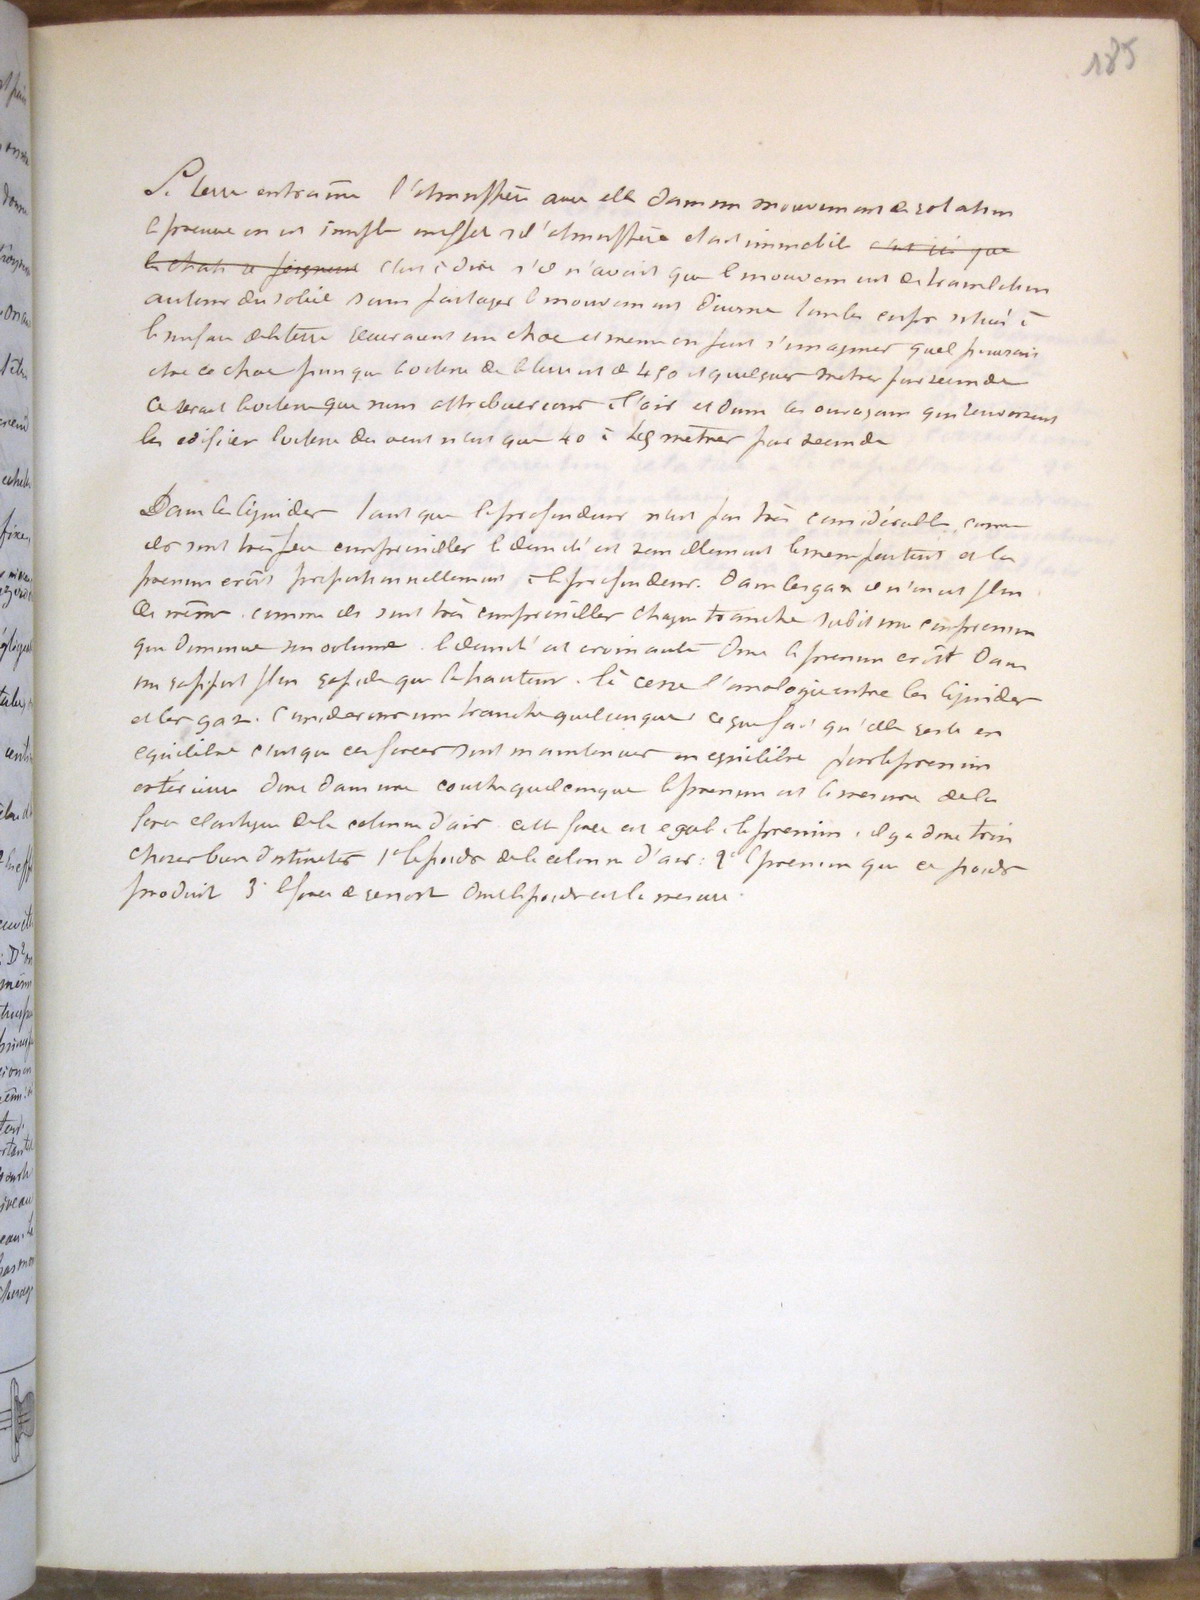 185
La terre entraîne l'atmosphère avec elle dans un mouvement de rotation
la preuve en est simple en effet si l'atmosphère etait immobile
c'est à dire s'il n'avait que le mouvement de translation
autour du soleil sans partager le mouvement diurne tous les corps situés à
la surface de la terre recevraient un choc et meme on peut s'imaginer quel pourrait
etre ce choc puisque la vitesse de la terre est de 450 et quelques metres par seconde
ce serait la vitesse que nous attribuerions à l'air et dans les ouragans qui renversent
les edifices la vitesse du vent n'est que 40 à 45 metres par seconde
Dans les liquides tant que la profondeur n'est pas très considérable, comme
ils sont très peu compressibles la densité est sensiblement la meme partout et la
pression croît proportionnellement à la profondeur. Dans les gaz il n'en est plus
de même. comme ils sont très compressibles chaque tranche subit une compression
qui diminue son volume. la densité est croissante donc la pression croît dans
un rapport plus rapide que la hauteur. là cesse l'analogie entre les liquides
et les gaz. Considerons une tranche quelconque ce qui fait qu'elle reste en
equilibre c'est que ces forces sont maintenues en equilibre par la pression
extérieure donc dans une couche quelconque la pression est la mesure de la
force elastique de la colonne d'air. cette force est egale à la pression. il y a donc trois
choses bien distinctes 1° le poids de la colonne d'air: 2° la pression que ce poids
produit 3° la force de ressort dont le poids est la mesure.